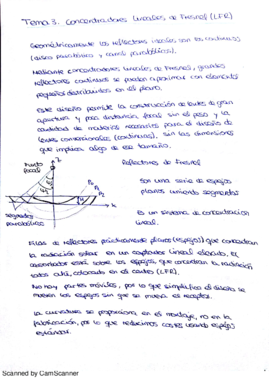 Tema 3. Concentradores lineales de Fresnel (LFR)
Geométricamente los reflectores ideales son los continuos
(disco parabólico y canal parabólico).
Mediante concentradores lineales de Fresnel, grandes
reflectores continuos se pueden aproximar con elementos
pequeños distribuidos en el plano.
Este diseño permite la construcción de lentes de gran
apertura y poca distancia focal sin el peso y la
cantidad de materiales necesarios para el diseño de
lentes convencionales (continuas), sin las dimensiones
que implica algo de ese tamaño.
Punto
focal
z
x
P₁
P₂
P₃
segmentos
parabólicos
Reflectores de Fresnel
Son una serie de espejos
planos uniendo segmentos
Es un sistema de concentración
lineal.
Filas de reflectores prácticamente planos (espejos) que concentran
la radiación solar en un captador lineal elevado. El
concentrador está sobre los espejos, que concentran la radiación
sobre ella, colocado en el centro (LFR).
No hay partes móviles, por lo que simplifica el diseño se
mueven los espejos sin que se mueva el receptor.
La curvatura se proporciona en el montaje, no en la
fabricación, por lo que reducimos costes usando espejos
estándar.
Scanned by CamScanner